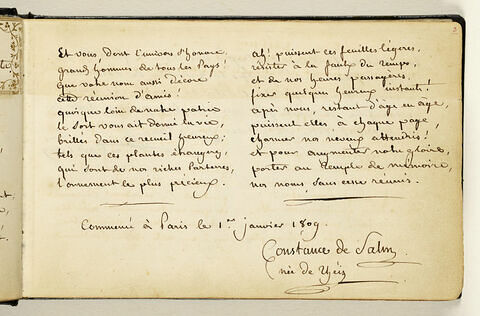 Et vous dont l'univers s'honore,
grands hommes de tous les Pays!
que votre nom aussi décore
cette réunion d'amis!
quoique loin de notre patrie
le sort vous ait donné la vie,
brillez dans ce recueil heureux;
tels que ces plantes étrangères,
qui sont de nos riches Parterres,
l'ornement le plus précieux.
ah! puissent ces feuilles légères,
résister à la faulx du temps,
et de nos heures passagères,
fixer quelques heureux instants!
après nous, restant d'âge en âge,
puissent elles à chaque page,
charmer nos neveux attendris!
et pour augmenter notre gloire,
porter au temple de mémoire,
nos noms sans cesse réunis.
Commencé à Paris le 1er janvier 1809.
Constance de Salm
née de Théis